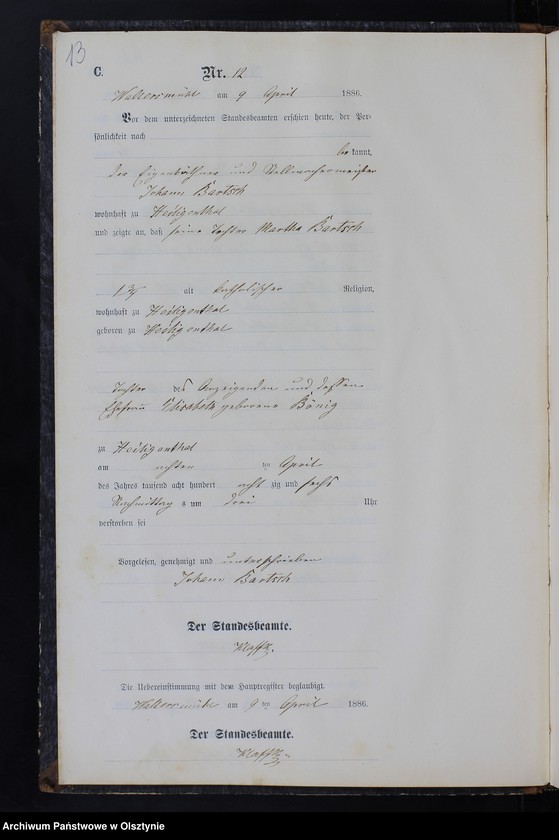 13
C. Nr. 12
Walkersmühl am 9 April 1886.
Vor dem unterzeichneten Standesbeamten erschien heute, der Per-
sönlichkeit nach
bekannt,
der Eigenkäthner und Stellmachermeister
Johann Bartsch
wohnhaft zu Heiligenthal
und zeigte an, daß seine Tochter Martha Bartsch
alt katholischer Religion,
wohnhaft zu Heiligenthal
geboren zu Heiligenthal
Tochter des Anzeigenden und dessen
Ehefrau Elisabeth geborene Bönig
zu Heiligenthal
am achten ten April
des Jahres tausend acht hundert acht zig und sechs
Nachmittag s um drei Uhr
verstorben sei
Vorgelesen, genehmigt und unterschrieben
Johann Bartsch
Der Standesbeamte.
Die Uebereinstimmung mit dem Hauptregister beglaubigt.
Walkersmühl am 9 ten April 1886.
Der Standesbeamte.
Archiwum Państwowe w Olsztynie